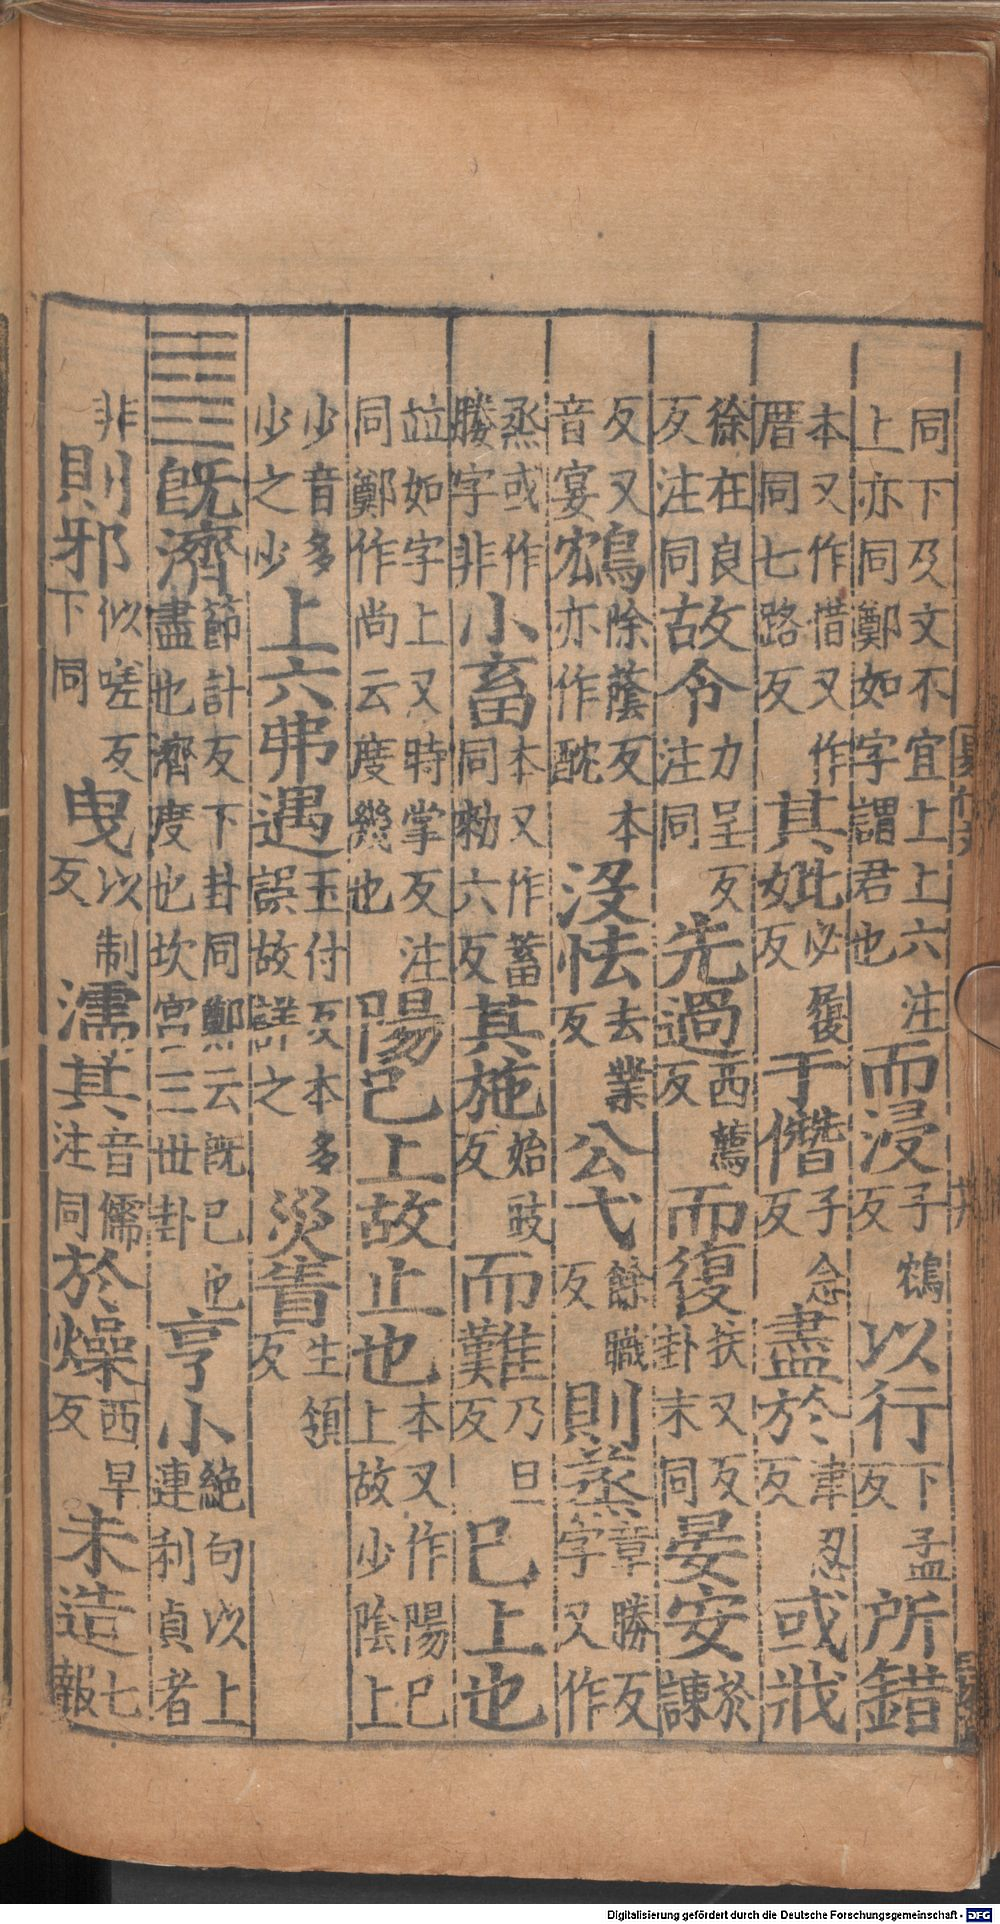 同下及文不宜上上六注上亦同鄭如字謂君也而浸子鴆反以行下孟反所錯
本又作惜又作厝同七路反其妣必履反于僭子念反盡於津忍反或戕
徐在良反注同故令力呈反注同先過西薦反而復扶又反卦末同晏安於諫
反又音宴鴆除蔭反本亦作酖没怯去業反公弋餘職反則蒸章勝反字又作
烝或作㬺字非小畜本又作蓄同勑六反其施始豉反而難乃旦反巳上也
並如字上又時掌反注同鄭作尚云度幾也陽巳上故止也本又作陽巳上故少陰上
少音多少之少上六弗遇玉付反本多誤故詳之災眚生領反
䷾既濟節計反下卦同鄭云既巳也盡也濟度也坎宮三世卦亨小絕句以上連利貞者
非則邪似嗟反下同曳以制反濡其音儒注同於燥西早反未造七報
Digitalisierung gefördert durch die Deutsche Forschungsgemeinschaft - DFG